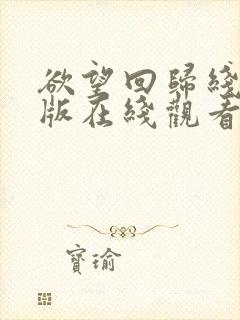 欲望回歸綫
版在綫觀看
寶瑜